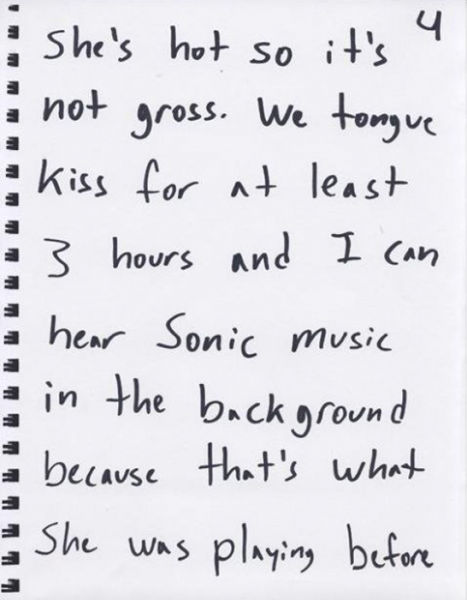 4
She's hot so it's
not gross. We tongue
kiss for at least
3 hours and I can
hear Sonic music
in the background
because that's what
She was playing before